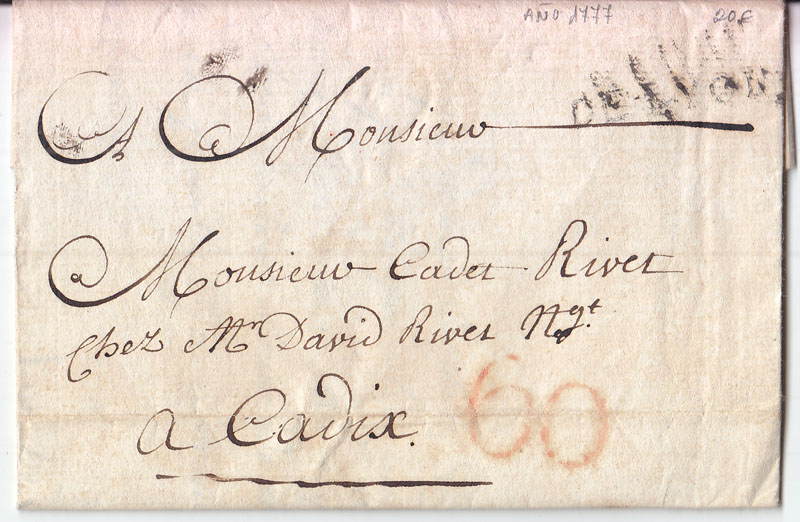 AÑO 1777 20€
A Monsieur
Monsieur Cadet Rivet
Chez Mr David Rivet Ngt.
a Cadix.
60